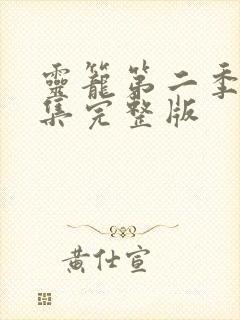 靈籠第二季
集完整版
黃仕宣